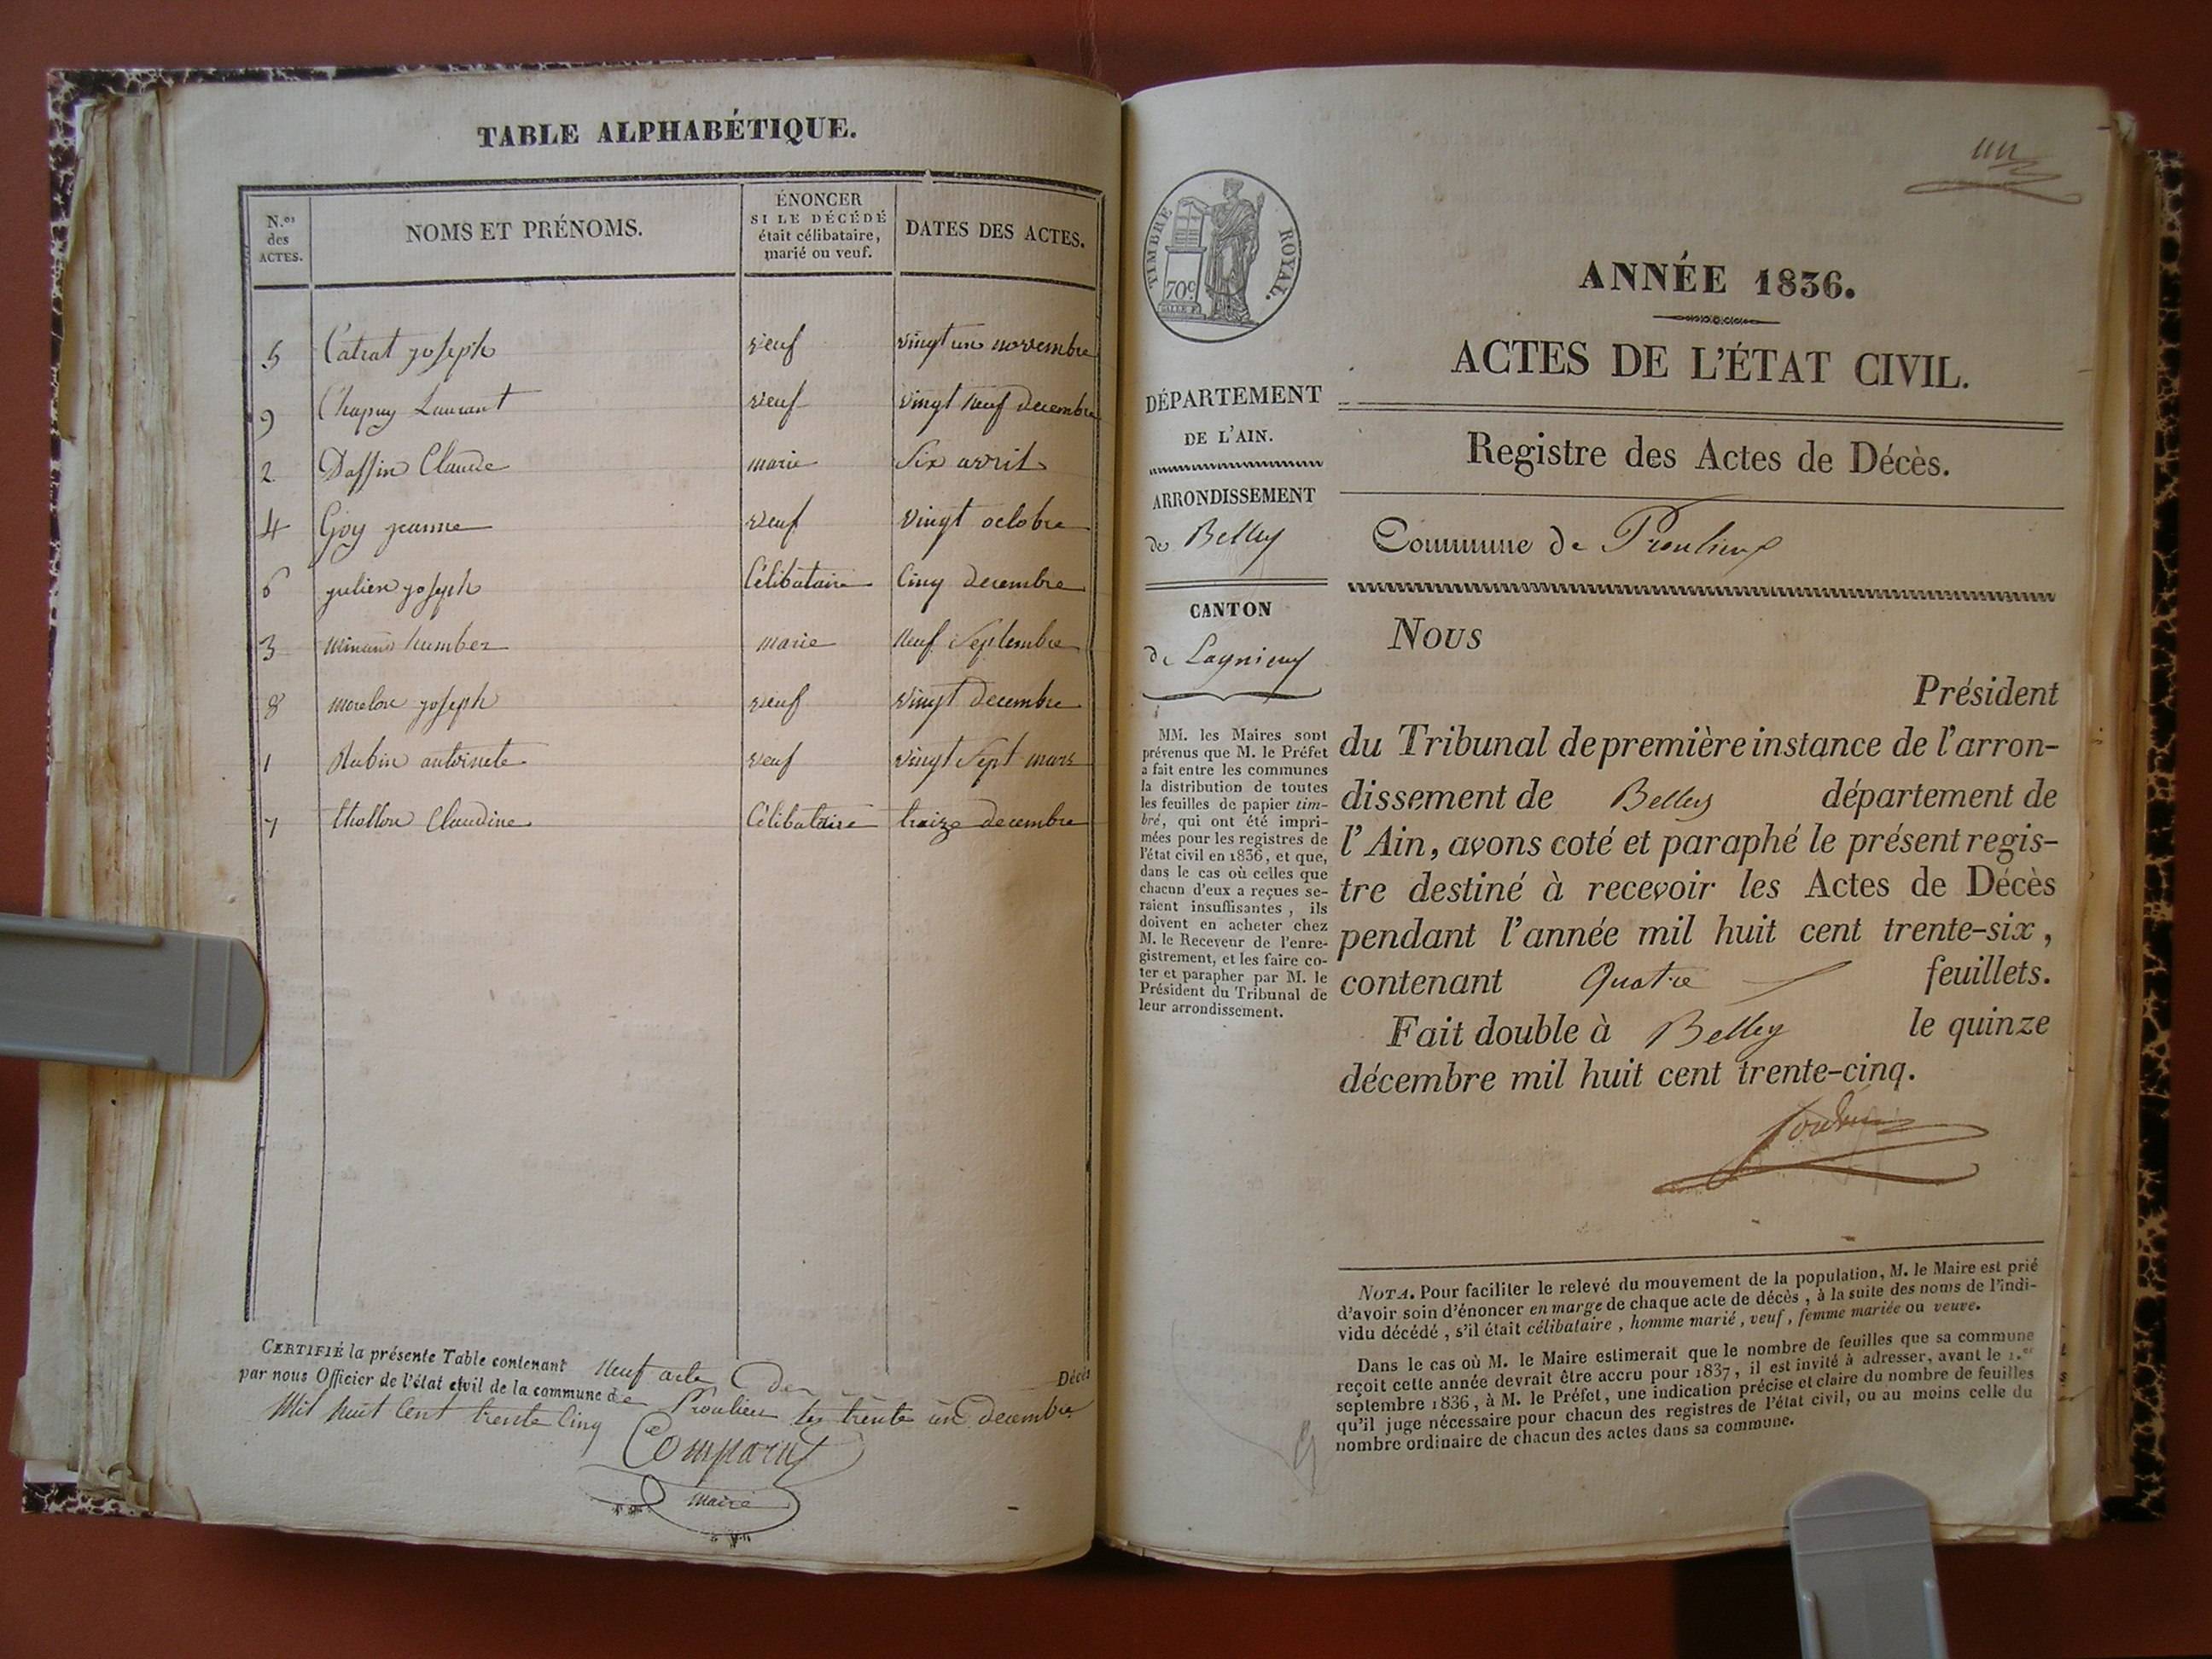 TABLE ALPHABÉTIQUE.
N.os des ACTES.
NOMS ET PRÉNOMS.
ÉNONCER
SI LE DÉCÉDÉ
était célibataire,
marié ou veuf.
DATES DES ACTES.
5 Catrat joseph veuf vingt un novembre
9 Chapuy Laurant veuf vingt neuf decembre
2 Daffin Claude marie Six avril
4 Goy jeanne veuf vingt octobre
6 julien joseph Célibataire Cinq decembre
3 humber marie neuf Septembre
8 morelon joseph veuf vingt decembre
1 Rubin antoinete veuf vingt Sept mars
7 thollon Claudine Célibataire traize decembre
CERTIFIÉ la présente Table contenant neuf acte de Décès
par nous Officier de l'état civil de la commune de Proulieu le trente un decembre
Mil huit Cent trente Cinq
Comparat
maire
un
TIMBRE ROYAL.
70c
ANNÉE 1836.
ACTES DE L'ÉTAT CIVIL.
DÉPARTEMENT
DE L'AIN.
ARRONDISSEMENT
de Belley
CANTON
de Lagnieu
MM. les Maires sont
prévenus que M. le Préfet
a fait entre les communes
la distribution de toutes
les feuilles de papier tim-
bré, qui ont été impri-
mées pour les registres de
l'état civil en 1836, et que,
dans le cas où celles que
chacun d'eux a reçues se-
raient insuffisantes, ils
doivent en acheter chez
M. le Receveur de l'enre-
gistrement, et les faire co-
ter et parapher par M. le
Président du Tribunal de
leur arrondissement.
Registre des Actes de Décès.
Commune de Proulieux
Nous
Président
du Tribunal de première instance de l'arron-
dissement de Belley département de
l'Ain, avons coté et paraphé le présent regis-
tre destiné à recevoir les Actes de Décès
pendant l'année mil huit cent trente-six,
contenant Quatre feuillets.
Fait double à Belley le quinze
décembre mil huit cent trente-cinq.
NOTA. Pour faciliter le relevé du mouvement de la population, M. le Maire est prié
d'avoir soin d'énoncer en marge de chaque acte de décès, à la suite des noms de l'indi-
vidu décédé, s'il était célibataire, homme marié, veuf, femme mariée ou veuve.
Dans le cas où M. le Maire estimerait que le nombre de feuilles que sa commune
reçoit cette année devrait être accru pour 1837, il est invité à adresser, avant le 1.er
septembre 1836, à M. le Préfet, une indication précise et claire du nombre de feuilles
qu'il juge nécessaire pour chacun des registres de l'état civil, ou au moins celle du
nombre ordinaire de chacun des actes dans sa commune.